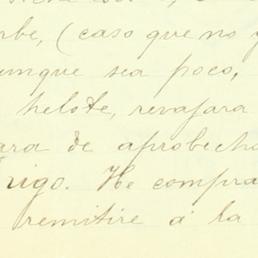 rbe, (caso que no
unque sea poco,
helote, revasara
ara de aprobecha
rigo. He compra
remitire á la